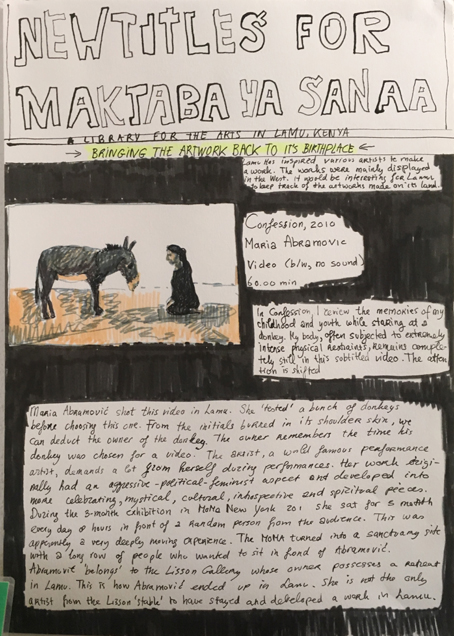 NEW TITLES FOR
MAKTABA YA SANAA
A LIBRARY FOR THE ARTS IN LAMU, KENYA
→ BRINGING THE ARTWORK BACK TO IT'S BIRTHPLACE ←
Lamu has inspired various artists to make
a work. The works were mainly displayed
in the West. It would be interesting for Lamu
to keep track of the artworks made on its land.
Confession, 2010
Maria Abramovic
Video (b/w, no sound)
60.00 min
In Confession, I review the memories of my
childhood and youth while staring at a
donkey. My body, often subjected to extremely
intense physical restraints, remains comple-
tely still in this subtitled video. The atten
tion is shifted
Maria Abramović shot this video in Lamu. She 'tested' a bunch of donkeys
before choosing this one. From the initials burned in its shoulder skin, we
can deduct the owner of the donkey. The owner remembers the time his
donkey was chosen for a video. The artist, a world famous performance
artist, demands a lot from herself during performances. Her work origi-
nally had an aggressive-political-feminist aspect and developed into
more celebrating, mystical, cultural, introspective and spiritual pieces.
During the 3-month exhibition in MoMa New York 201 she sat for 3 month
every day 8 hours in front of a random person from the audience. This was
apparently a very deeply moving experience. The MoMA turned into a sanctuary site
with a long row of people who wanted to sit in frond of Abramović.
Abramović 'belongs' to the Lisson Gallery whose owner possesses a retreat
in Lamu. This is how Abramović ended up in Lamu. She is not the only
artist from the Lisson 'stable' to have stayed and developed a work in Lamu.